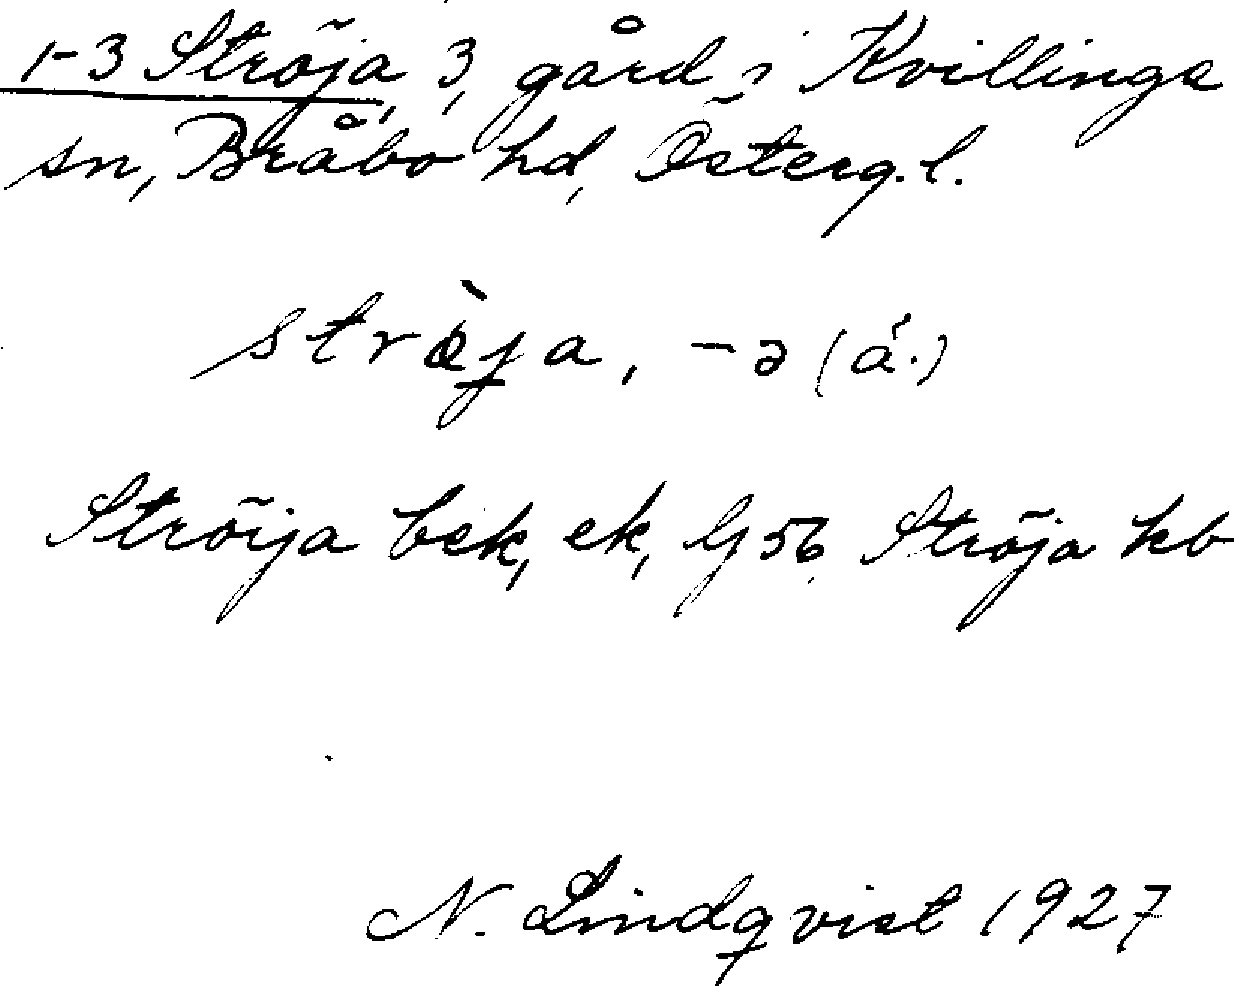 1-3 Ströja, 3, gård i Kvillinge
sn, Bråbo hd, Österg. l.
strø̀ja, -ə (á.)
Ströija bek, ek, G 56 Ströja kb
N. Lindqvist 1927